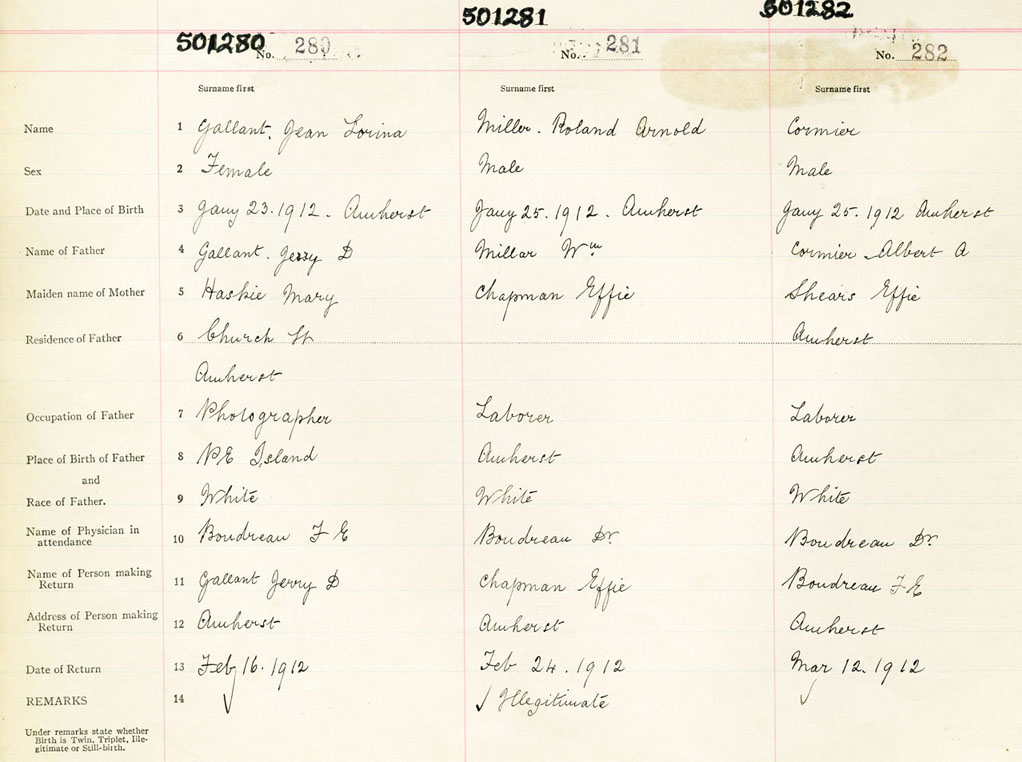 501280 No. 280
501281
No. 281
501282
No. 282
Surname first Surname first Surname first
Name 1 Gallant, Jean Lorina Miller. Roland Arnold Cormier
Sex 2 Female Male Male
Date and Place of Birth 3 Jany 23. 1912. Amherst Jany 25. 1912. Amherst Jany 25. 1912 Amherst
Name of Father 4 Gallant. Jerry D Millar Wm Cormier Albert A
Maiden name of Mother 5 Haskie Mary Chapman Effie Shears Effie
Residence of Father 6 Church St Amherst
Amherst
Occupation of Father 7 Photographer Laborer Laborer
Place of Birth of Father 8 PE Island Amherst Amherst
and
Race of Father. 9 White White White
Name of Physician in
attendance 10 Boudreau F E Boudreau Dr. Boudreau Dr.
Name of Person making
Return 11 Gallant Jerry D Chapman Effie Boudreau F E
Address of Person making
Return 12 Amherst Amherst Amherst
Date of Return 13 Feb 16. 1912 Feb 24. 1912 Mar 12. 1912
REMARKS 14 ✓ ✓ Illegitimate ✓
Under remarks state whether
Birth is Twin, Triplet, Ille-
gitimate or Still-birth.